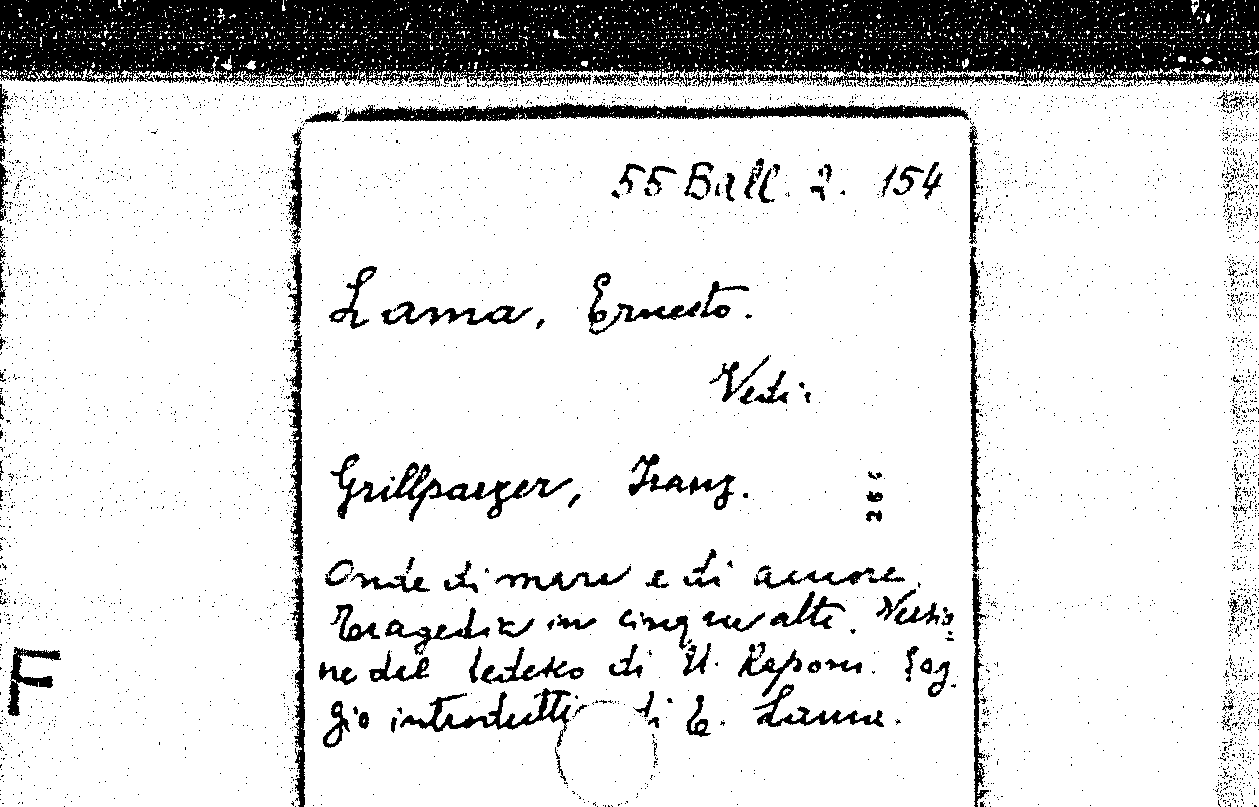 55 Ball. 2. 154
Lama, Ernesto.
Vedi:
Grillparzer, Franz.
Onde di mare e di amore.
Tragedia in cinque atti. Versio=
ne del tedesco di U. Raponi. Sag.
gio introdutti di E. Lama.
F